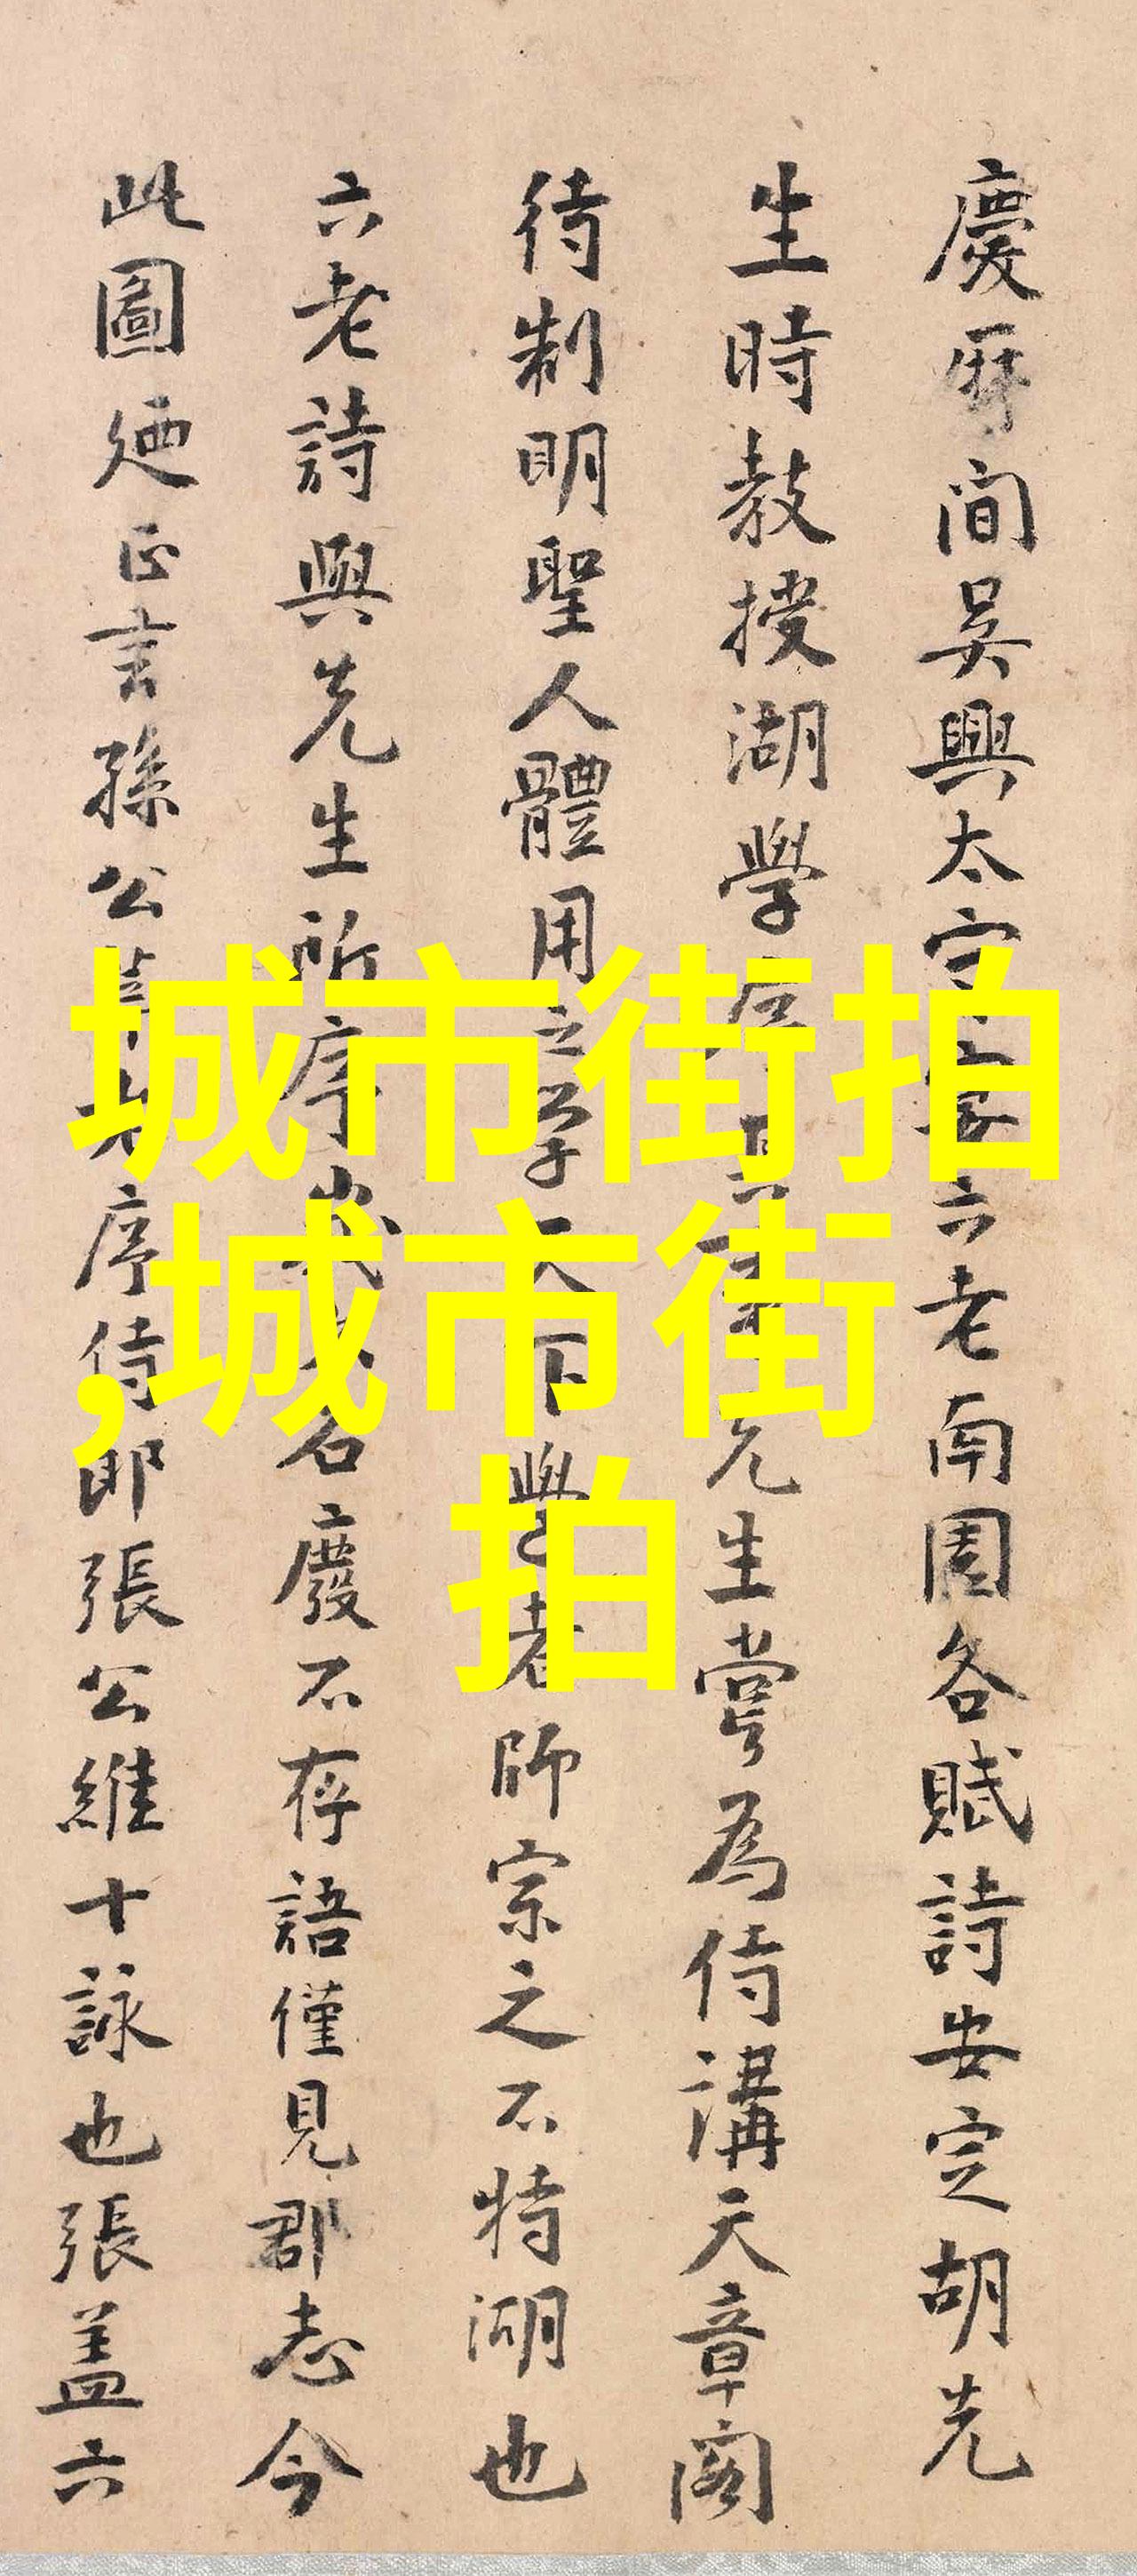 慶曆間吳興太守六老南園各賦詩安定胡先
生時教授湖學先生嘗為侍講天章閣
待制明聖人體用之學天下學者師宗之不特湖也
六老詩與先生所序名廢不存語僅見郡志今
此圖廼正言孫公序侍郎張公維十詠也張蓋六
城市街拍
,城市街
拍